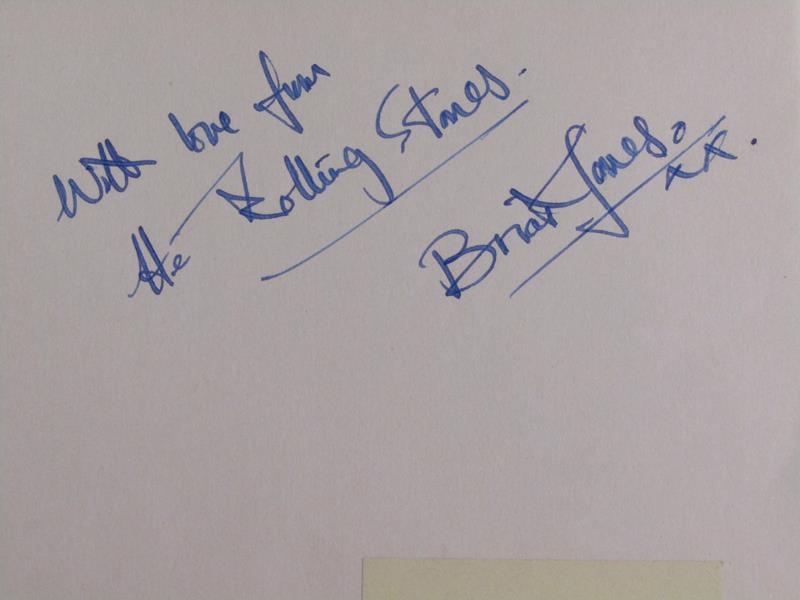 With love from
the Rolling Stones.
Brian Jones. xx.